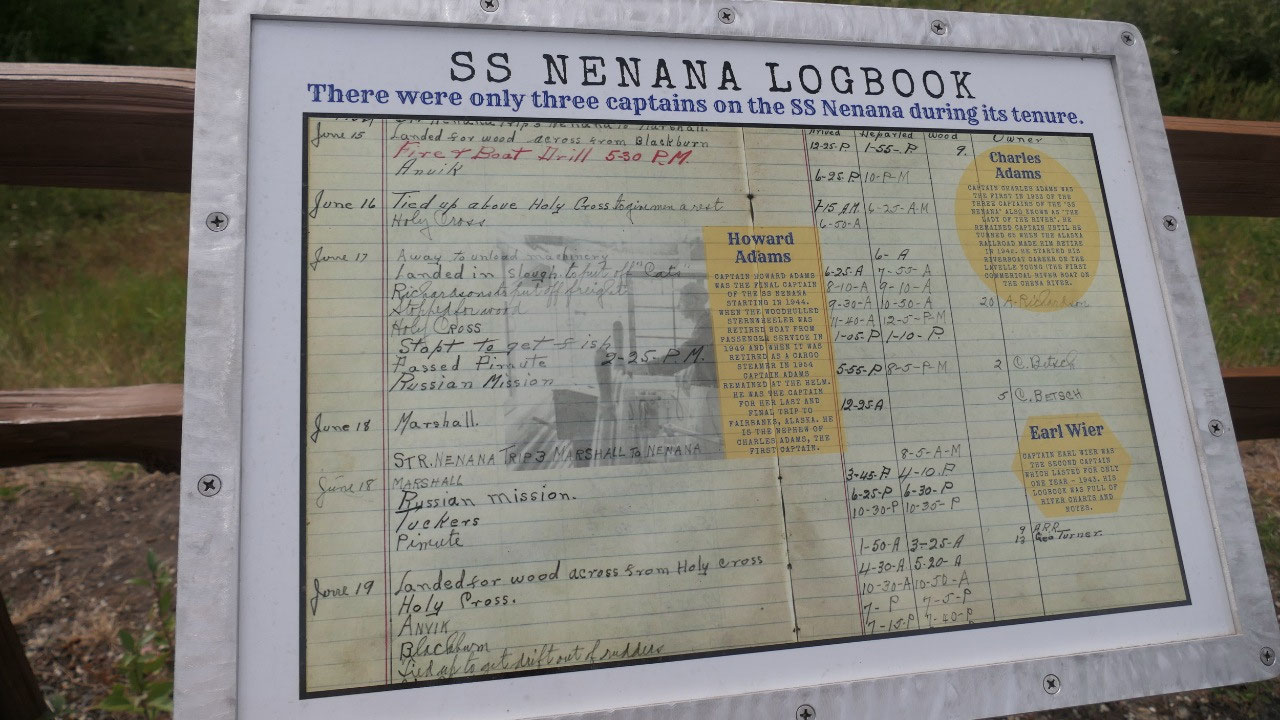 SS NENANA LOGBOOK
There were only three captains on the SS Nenana during its tenure.
Arrived Departed Wood Owner
June 15 Landed for wood across from Blackburn 12-25-P 1-55-P 9.
Fire & Boat Drill 5-30 P.M.
Anvik 6-25-P 10-P-M
June 16 Tied up above Holy Cross to give men a rest 7-15 A.M. 6-25-A-M
Holy Cross 6-50-A
June 17 Away to unload machinery 6- A
Landed in slough to put off "Cats" 6-25-A 7-55-A
Richardsons to put off freight 8-10-A 9-10-A
Stopped for wood 9-30-A 10-50-A 20 A. Richardson
Holy Cross 11-40-A 12-5-P-M
Stopt to get fish 1-05-P 1-10-P.
Passed Pimute 2-25-P.M.
Russian Mission 5-55-P 8-5-P-M 2 C. Betsch
5 C. BETSCH
June 18 Marshall. 12-25-A
STR. NENANA TRIP 3, MARSHALL TO NENANA
June 18 MARSHALL 8-5-A-M
Russian mission. 3-45-P 4-10-P
Tuckers 6-25-P 6-30-P
Pimute 10-30-P 10-35-P
June 19 Landed for wood across from Holy Cross 1-50-A 3-25-A 9 ARR
13 Geo Turner.
Holy Cross. 4-30-A 5-20-A
ANVIK 10-30-A 10-50-A
Blackburn 7- P 7-5-P
Tied up to get drift out of rudders 7-15-P 7-40-P
Charles
Adams
CAPTAIN CHARLES ADAMS WAS
THE FIRST IN 1933 OF THE
THREE CAPTAINS OF THE "SS
NENANA" ALSO KNOWN AS "THE
LADY OF THE RIVER". HE
REMAINED CAPTAIN UNTIL HE
TURNED 65 WHEN THE ALASKA
RAILROAD MADE HIM RETIRE
IN 1942. HE STARTED HIS
RIVERBOAT CAREER ON THE
LAVELLE YOUNG (THE FIRST
COMMERICAL RIVER BOAT ON
THE CHENA RIVER.
Howard
Adams
CAPTAIN HOWARD ADAMS
WAS THE FINAL CAPTAIN
OF THE SS NENANA
STARTING IN 1944.
WHEN THE WOODHULLED
STERNWHEELER WAS
RETIRED BOAT FROM
PASSENGER SERVICE IN
1949 AND WHEN IT WAS
RETIRED AS A CARGO
STEAMER IN 1954
CAPTAIN ADAMS
REMAINED AT THE HELM.
HE WAS THE CAPTAIN
FOR HER LAST AND
FINAL TRIP TO
FAIRBANKS, ALASKA. HE
IS THE NEPHEW OF
CHARLES ADAMS, THE
FIRST CAPTAIN.
Earl Wier
CAPTAIN EARL WIER WAS
THE SECOND CAPTAIN
WHICH LASTED FOR ONLY
ONE YEAR - 1943. HIS
LOGBOOK WAS FULL OF
RIVER CHARTS AND
NOTES.